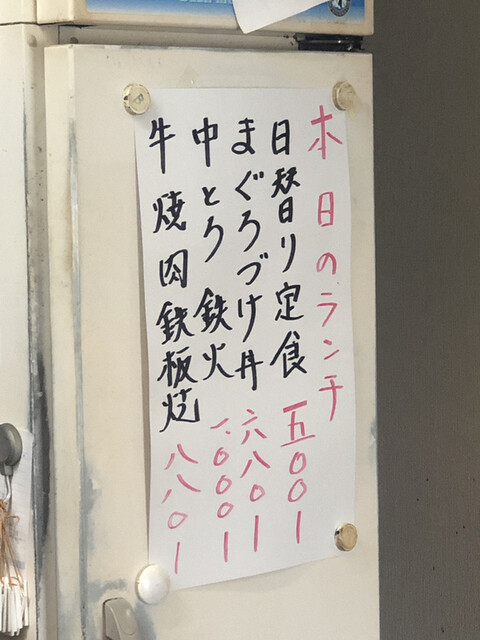 本日のランチ
日替り定食 五〇〇ー
まぐろづけ丼 六八〇ー
中とろ鉄火 一、〇〇〇ー
牛焼肉鉄板焼 八八〇ー